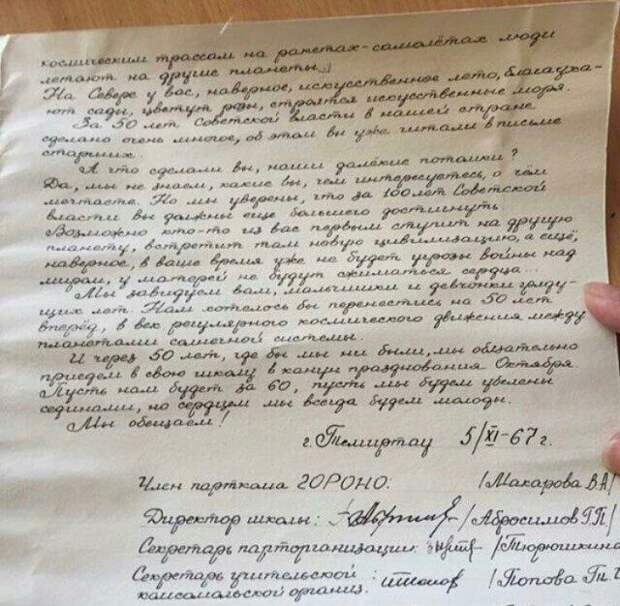 космическим трассам на ракетах-самолётах люди
летают на другие планеты...
На Севере у вас, наверное, искусственное лето, благоуха-
ют сады, цветут розы, строятся искусственные моря.
За 50 лет Советской власти в нашей стране
сделано очень многое, об этом вы уже читали в письме
старших.
А что сделали вы, наши далёкие потомки?
Да, мы не знаем, какие вы, чем интересуетесь, о чём
мечтаете. Но мы уверены, что за 100 лет Советской
власти вы должны еще большего достигнуть.
Возможно кто-то из вас первым ступит на другую
планету, встретит там новую цивилизацию, а ещё,
наверное, в ваше время уже не будет угрозы войны над
миром, у матерей не будут сжиматься сердца...
Мы завидуем вам, мальчишки и девчонки гряду-
щих лет. Нам хотелось бы перенестись на 50 лет
вперёд, в век регулярного космического движения между
планетами солнечной системы.
И через 50 лет, где бы мы ни были, мы обязательно
приедем в свою школу в канун празднования Октября.
Пусть нам будет за 60, пусть мы будем убелены
сединами, но сердцем мы всегда будем молоды.
Мы обещаем!
г. Темиртау 5/XI-67 г.
Член парткома ГОРОНО: /Макарова В.А/
Директор школы: /Абросимов Г.П/
Секретарь парторганизации: /Тюрюшкина
Секретарь учительской : /Попова Г.
комсомольской организ.